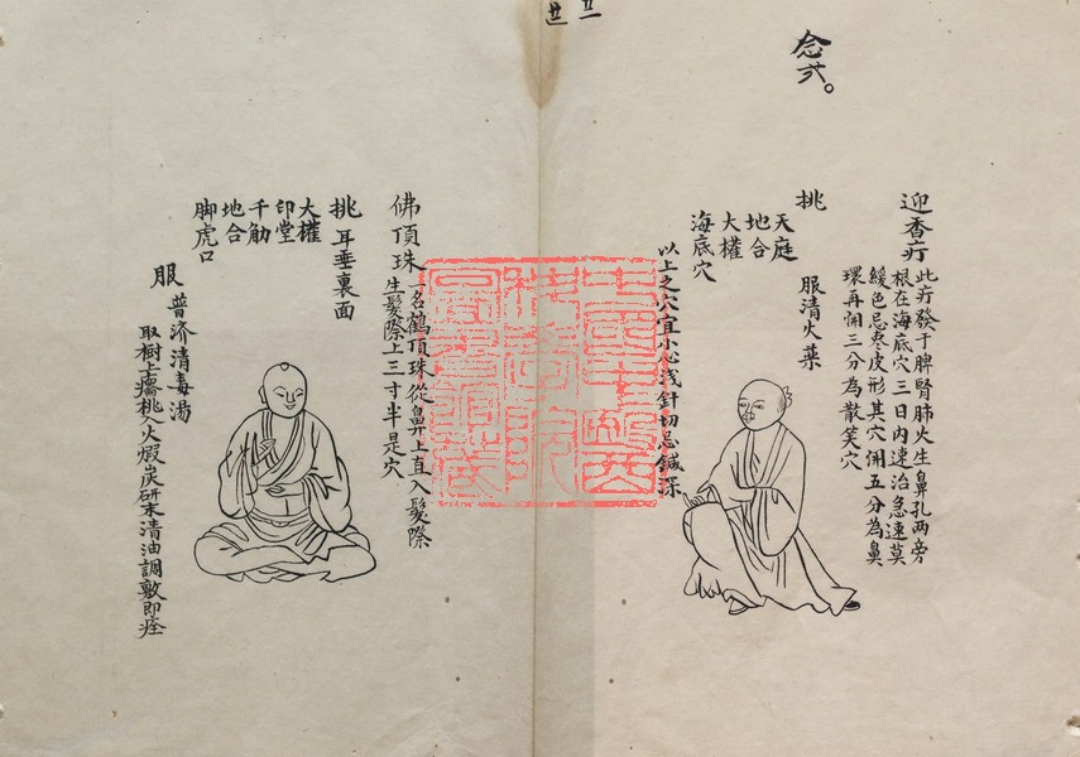 念弍。
迎香疔
此疔發于脾腎肺火生鼻孔两旁
根在海底穴三日内速治急速莫
緩色忌皮形其穴開五分為鼻
環再開三分為散笑穴
挑
天庭
地合
大權
海底穴
服清火藥
以上之穴宜小心浅針切忌鍼深
佛頂珠
一名鶴頂珠從鼻上直入髮際
生髮際上三寸半是穴
挑 耳垂裏面
大權
印堂
千觔
地合
脚虎口
服 普济清毒湯
取樹上癟桃入火煆炭研末清油調敷即痊